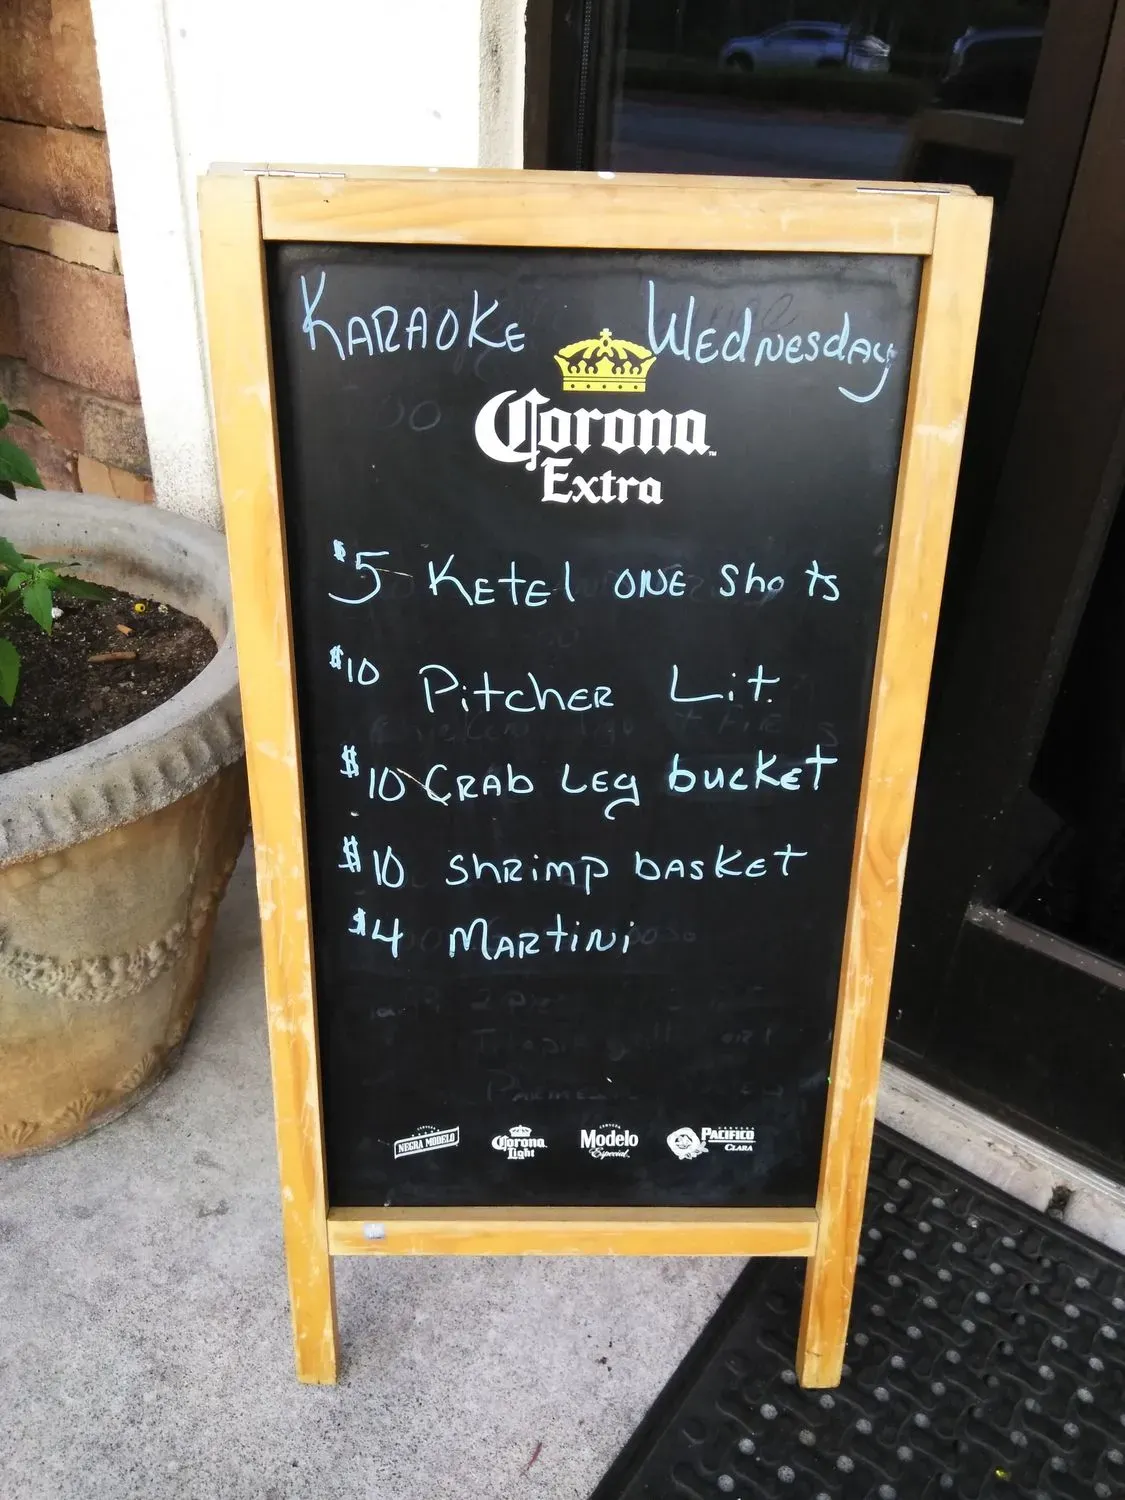 KARAOKE Wednesday
Corona
Extra
$5 Ketel ONE shots
$10 Pitcher Lit
$10 CRAb Leg bucket
$10 shrimp basket
$4 MARtiNi
CERVEZA
NEGRA MODELO
Corona
Light
CERVEZA
Modelo
Especial
CERVEZA
PACIFICO
CLARA